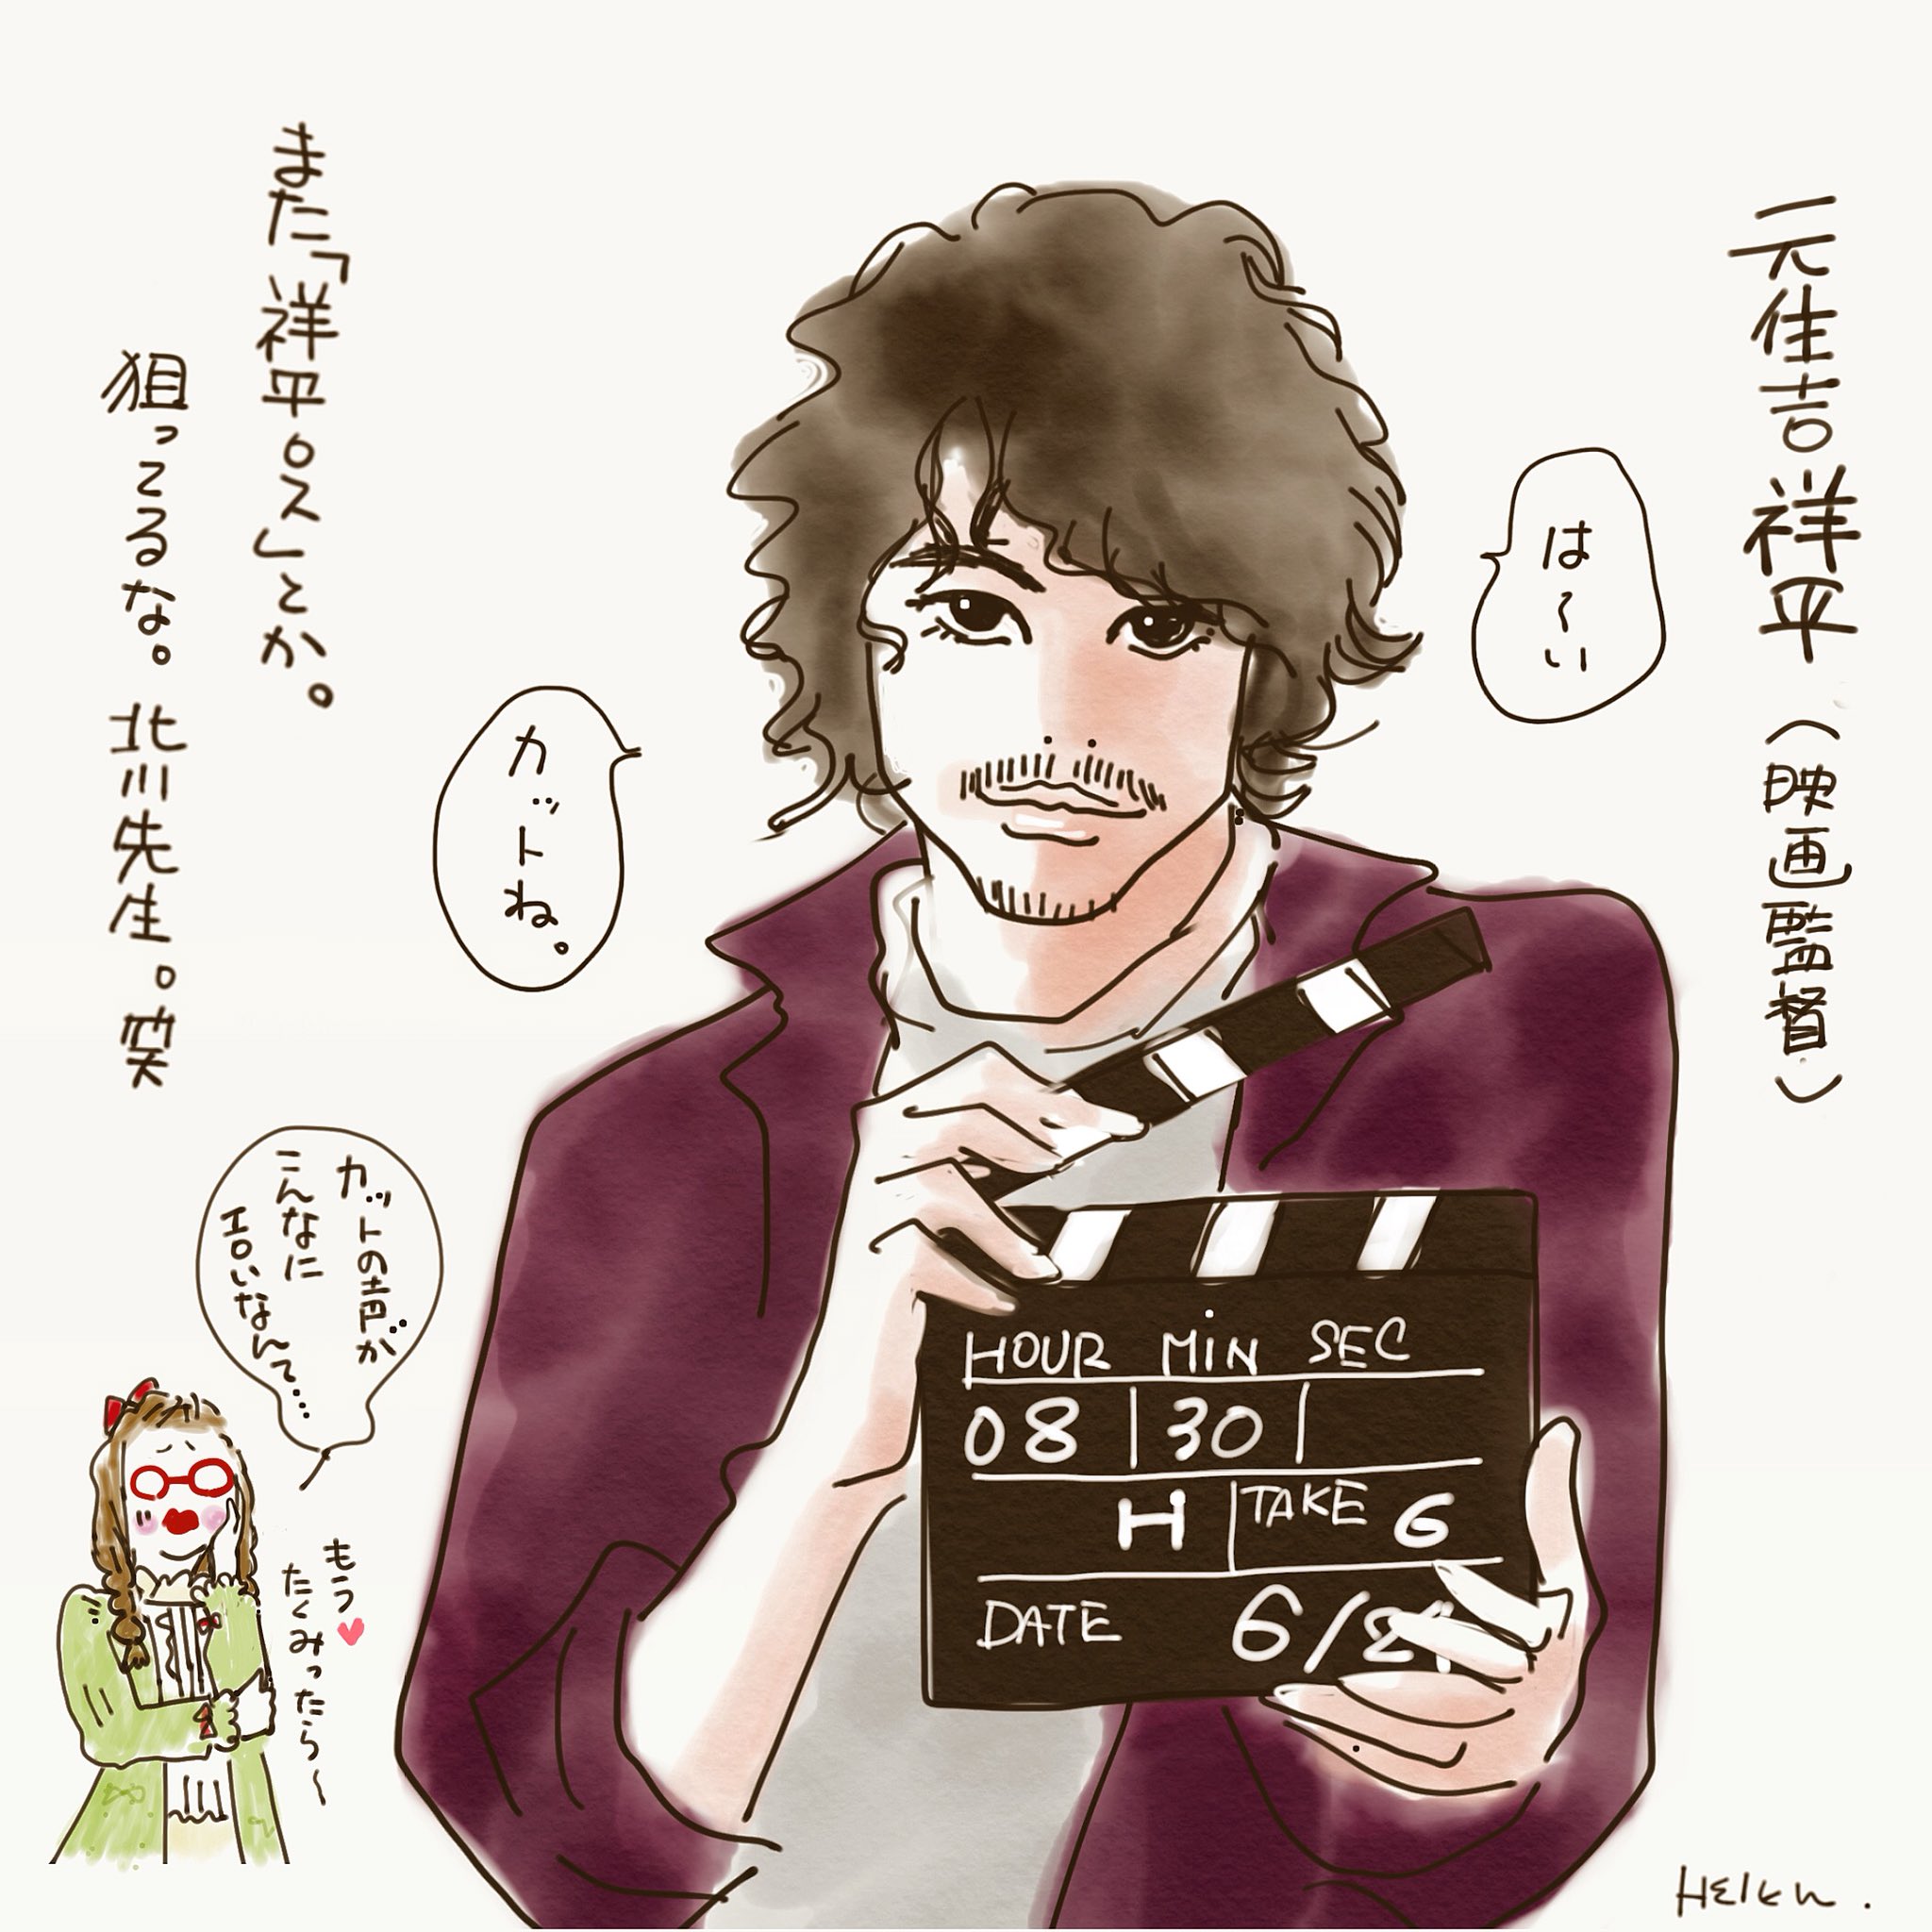 元住吉祥平(映画監督)
は〜い
また「祥平ロス」とか。
狙ってるな。北川先生。笑
カットね。
カットの声が
こんなに
エロいなんて…
もう♥
たくみったら〜
HOUR MiN SEC
08 30
H TAKE 6
DATE 6/2